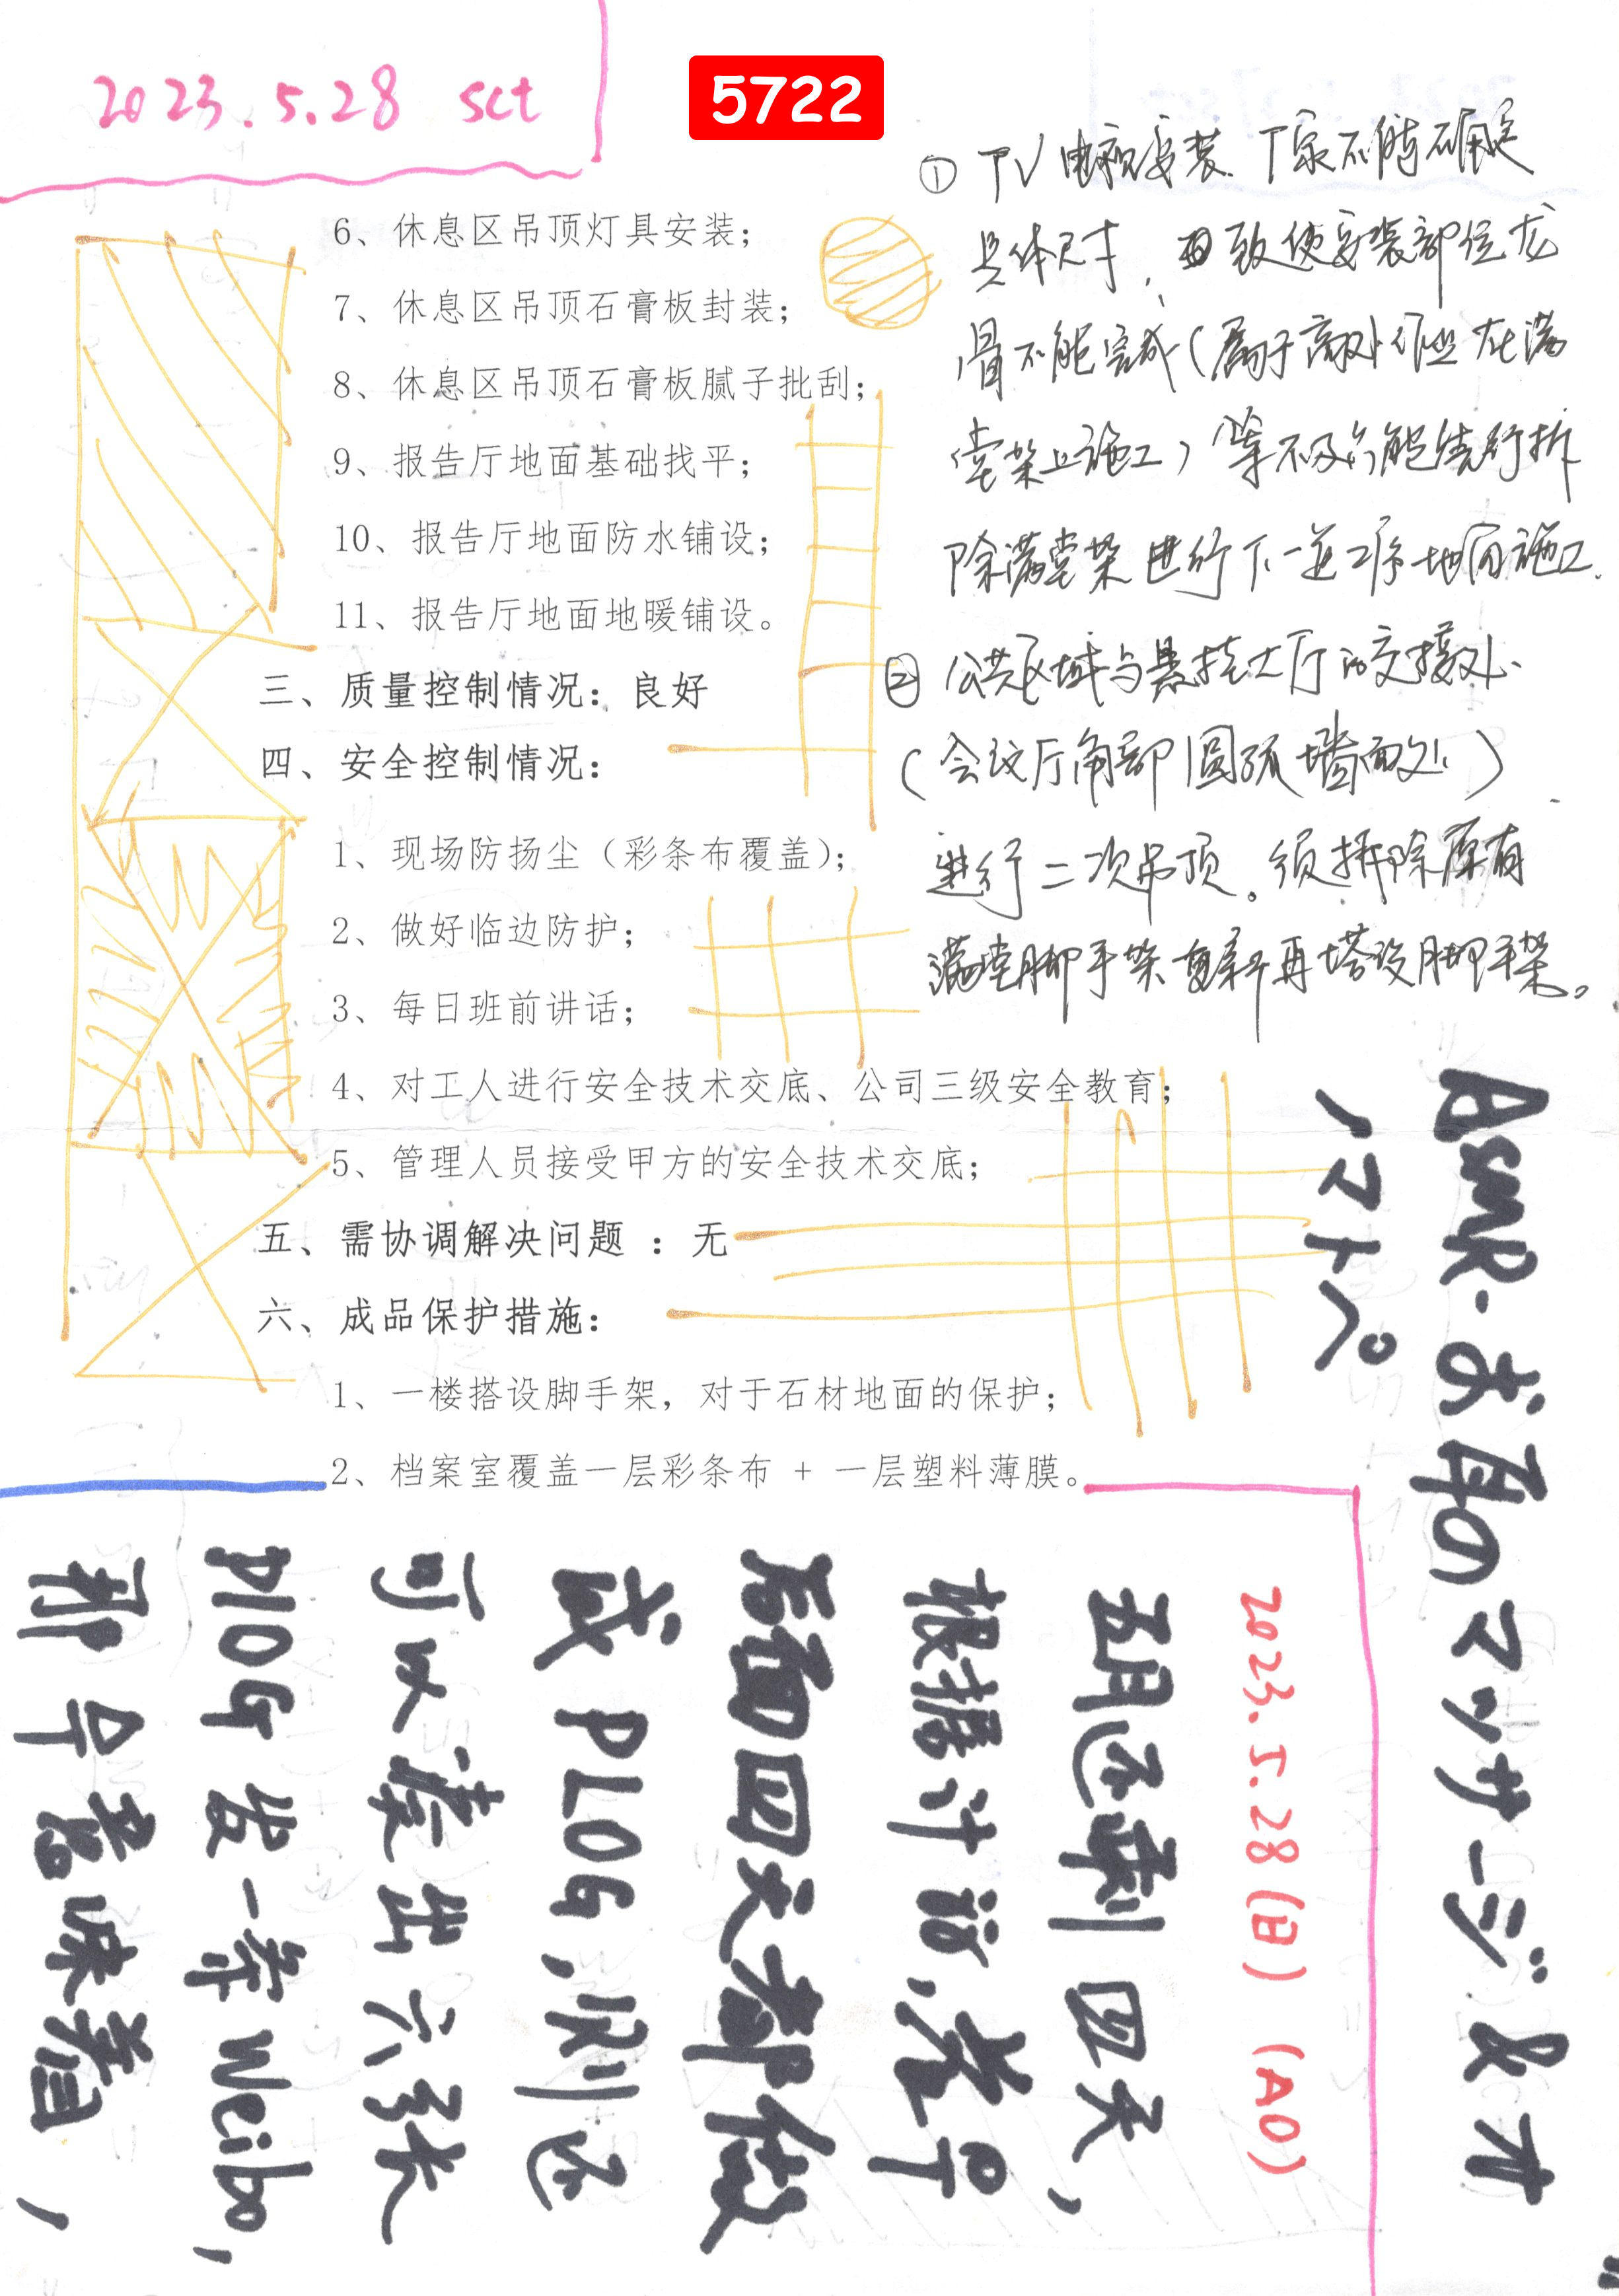 2023.5.28 sct
5722
6、休息区吊顶灯具安装；
7、休息区吊顶石膏板封装；
8、休息区吊顶石膏板腻子批刮；
9、报告厅地面基础找平；
10、报告厅地面防水铺设；
11、报告厅地面地暖铺设。
三、质量控制情况：良好
四、安全控制情况：
1、现场防扬尘（彩条布覆盖）；
2、做好临边防护；
3、每日班前讲话；
4、对工人进行安全技术交底、公司三级安全教育；
5、管理人员接受甲方的安全技术交底；
五、需协调解决问题 ：无
六、成品保护措施：
1、一楼搭设脚手架，对于石材地面的保护；
2、档案室覆盖一层彩条布 + 一层塑料薄膜。
① TV电视安装、厂家不能确定
具体尺寸，致使安装部位龙
骨不能完成（属于高处作业 在满
堂架上施工）等不及只能先行拆
除满堂架 进行下一道工序 地面施工.
② 公共区域与悬挂大厅的交接处
（会议厅角部圆弧墙面处）
进行二次吊顶。须拆除原有
满堂脚手架 重新再塔设脚手架。
ASMR-お耳のマッサージ&オ
ノマトペ
2023.5.28(日) (AO)
五月还剩四天,
根据计议,楚早
后面四天都做
成PLOG,刚还
可以凑出六张
PLOG发一条Weibo,
那早意味着,